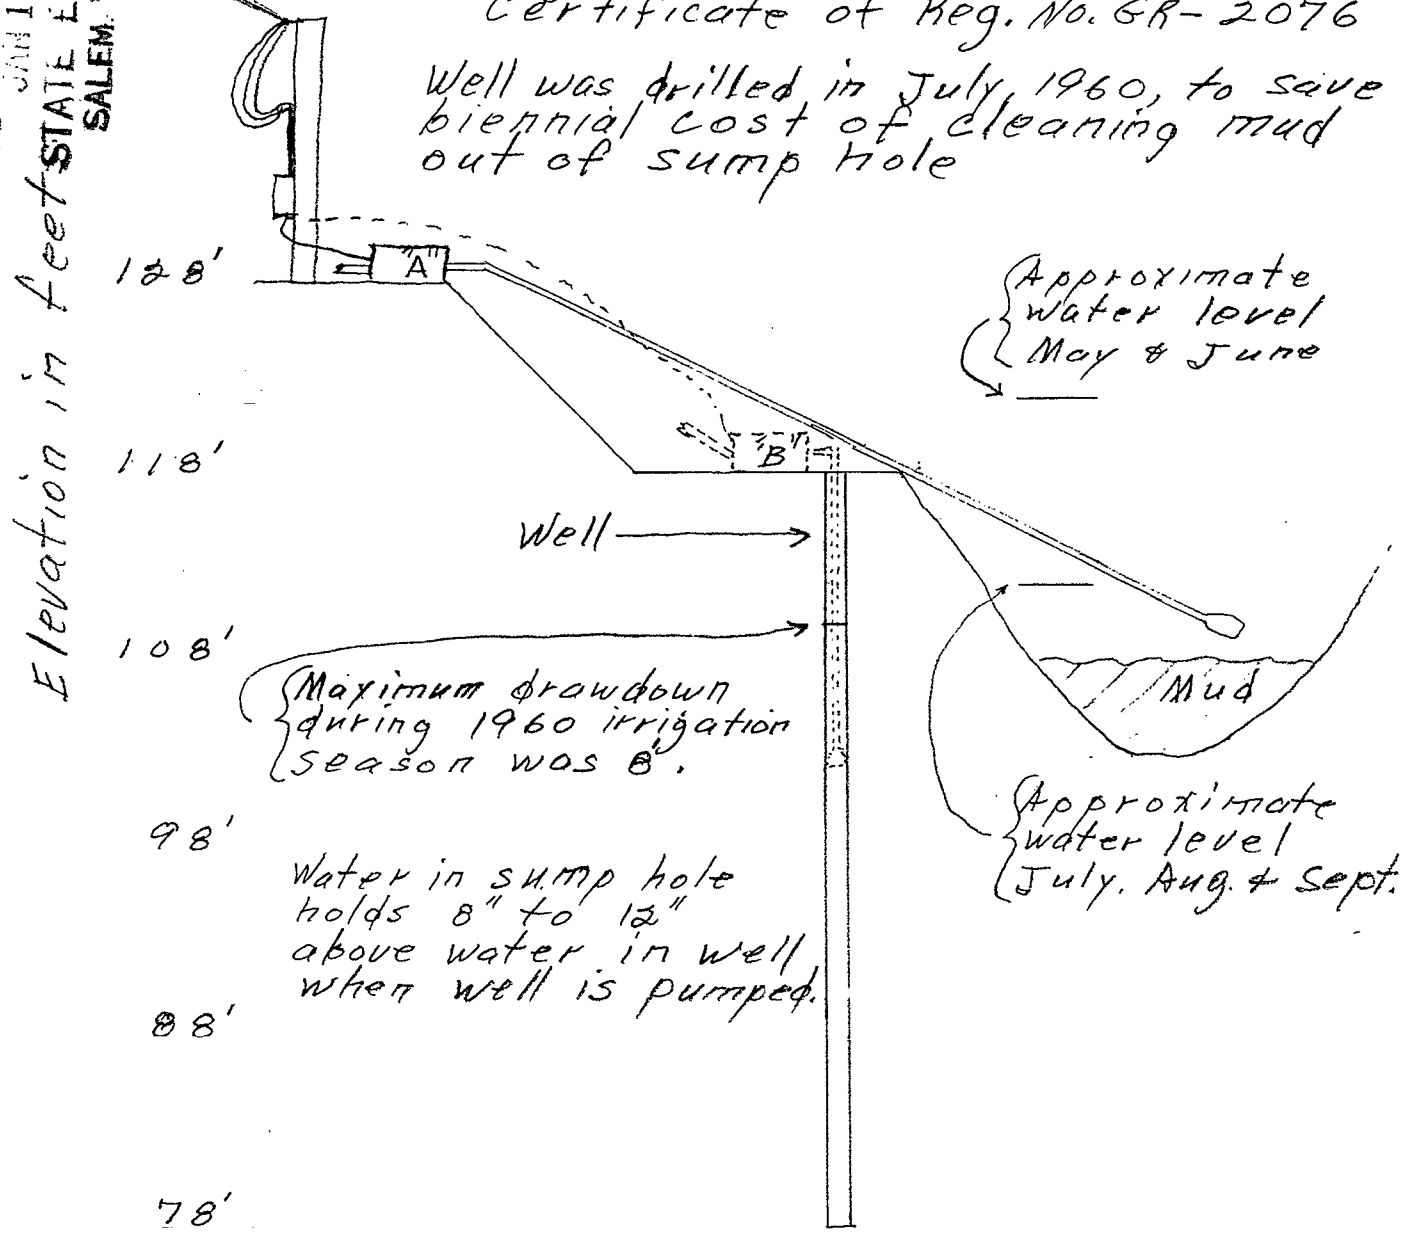 Certificate of Reg. No. GR-2076
Well was drilled in July, 1960, to save
biennial cost of cleaning mud
out of sump hole
JAN 1
STATE E
SALEM.
Elevation in feet
128'
"A"
Approximate
water level
May & June
118'
"B"
Well
108'
Maximum drawdown
during 1960 irrigation
season was 8'.
Mud
98'
Approximate
water level
July. Aug. & Sept.
Water in sump hole
holds 8" to 12"
above water in well
when well is pumped.
88'
78'